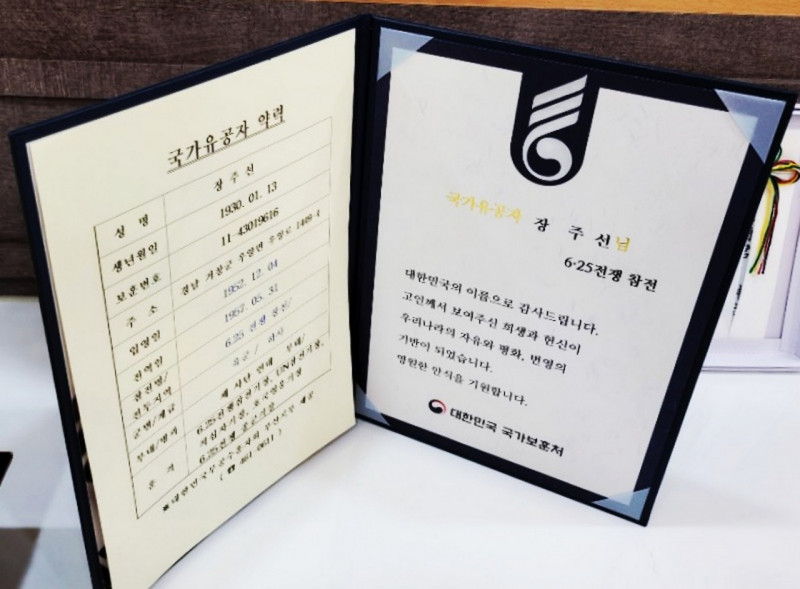 국가유공자 약력
성 명 장 주 선
생년월일 1930. 01. 13
보훈번호 11-43019616
주 소 경남 거창군 우양로 1489-4
입영일 1952. 12. 04
전역일 1957. 05. 31
참전명/ 6.25 전쟁 참전/
전투지역
군별/계급 육군 / 하사
부대/병과 사단 연대 부대/
훈 격 6.25전쟁참전기장, UN참전기장,
6.25전쟁 종군기장
※대한민국무공수훈자회 부산지부 제공
( ☎ 461-0611 )
국가유공자 장 주 선님
6·25전쟁 참전
대한민국의 이름으로 감사드립니다.
고인께서 보여주신 희생과 헌신이
우리나라의 자유와 평화, 번영의
기반이 되었습니다.
영원한 안식을 기원합니다.
대한민국 국가보훈처